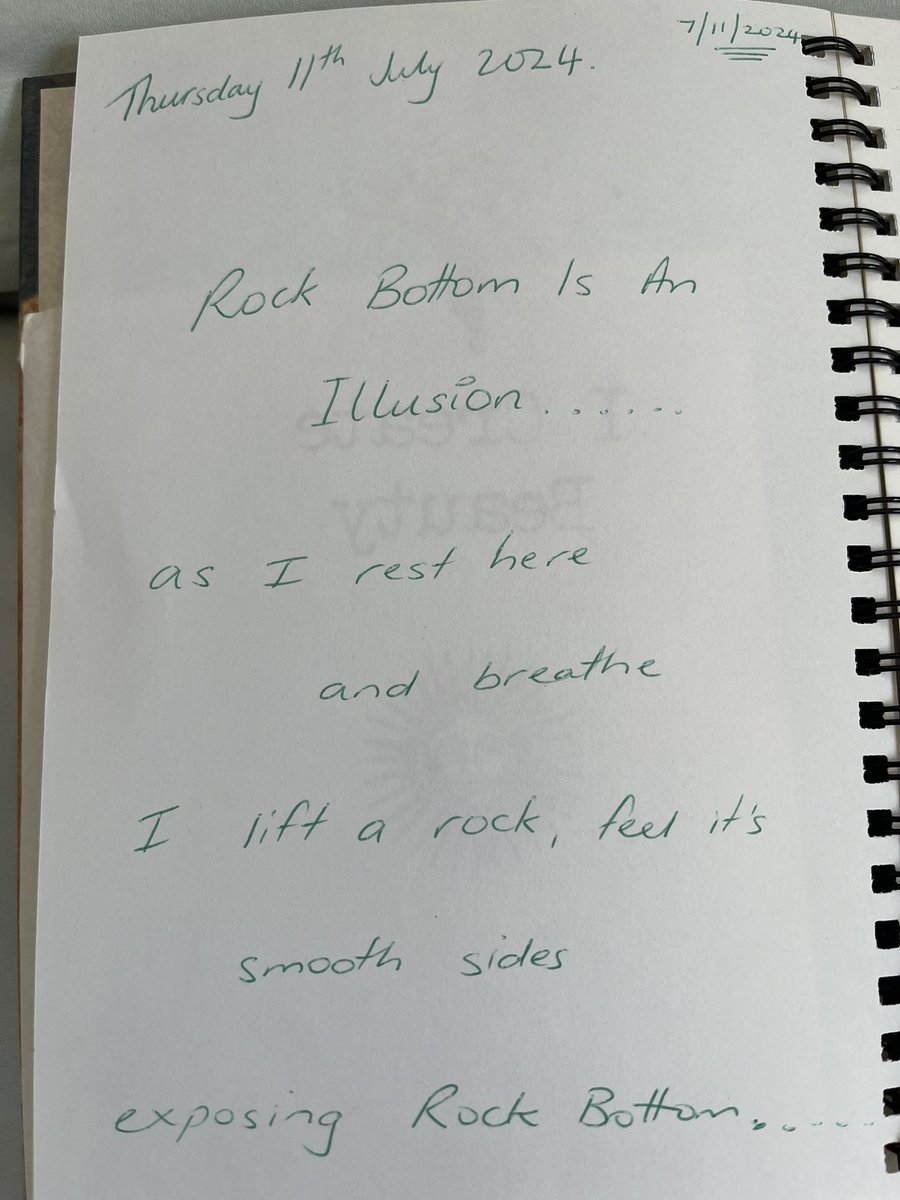 7/11/2024
Thursday 11th July 2024.
Rock Bottom Is An
Illusion......
as I rest here
and breathe
I lift a rock, feel it's
smooth sides
exposing Rock Bottom......
I Create
Beauty